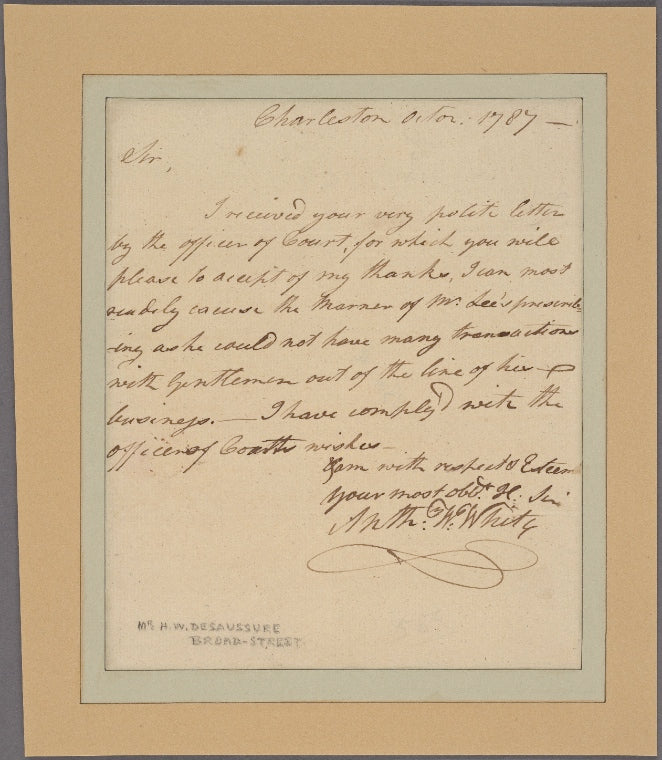 Charleston Octor. 1787 —
Sir,
I received your very polite letter
by the officer of Court, for which you will
please to accept of my thanks, I can most
readily excuse the Manner of Mr. Lee's prescrib-
-ing as he could not have many transactions
with Gentlemen out of the line of his
business. — I have comply'd with the
officer of Courts wishes —
I am with respect & Esteem
your most obdt. H. Sir
Anth: W. White
Mr. H. W. DESAUSSURE
BROAD-STREET